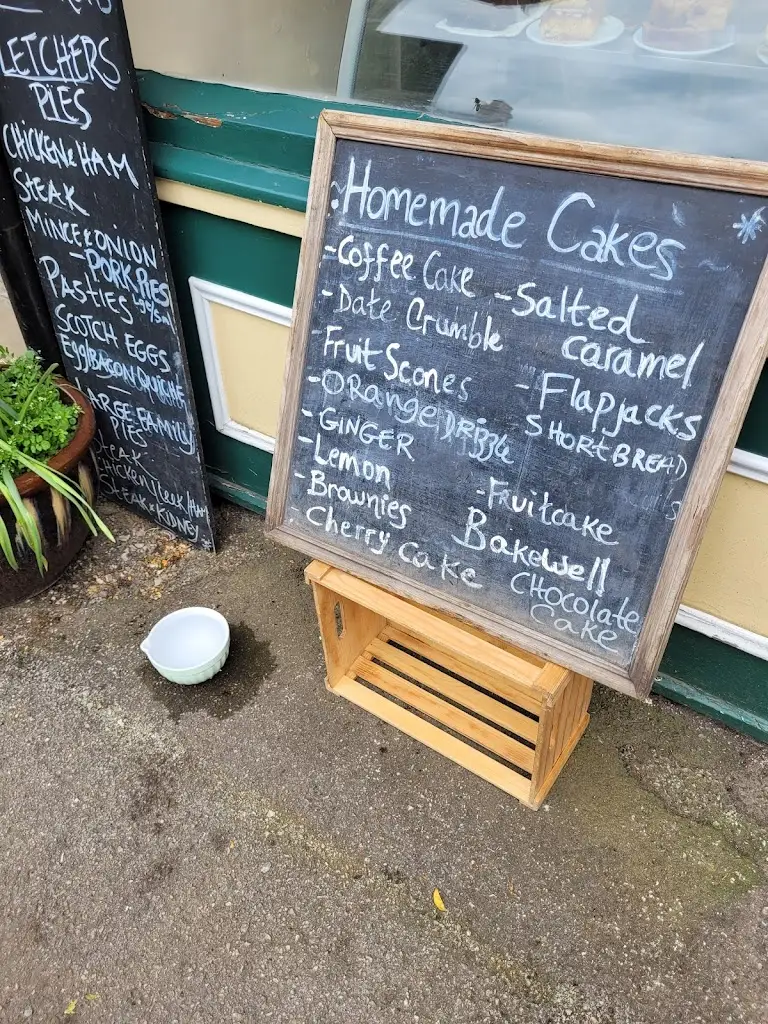 LETCHERS
PIES
CHICKEN & HAM
STEAK
MINCE & ONION
- PORK PIES
Lge/Sm
PASTIES
SCOTCH EGGS
Egg/BACON QUICHE
LARGE FAMILY
PIES
STEAK
CHICKEN/LEEK/HAM
STEAK & KIDNEY
Homemade Cakes
- Coffee Cake
- Date Crumble
Fruit Scones
- ORANGE DRIZZLE
- GINGER
- Lemon
- Brownies
- Cherry Cake
- Salted
Caramel
- Flapjacks
SHORTBREAD
- Fruitcake
Bakewell
CHOCOLATE
Cake